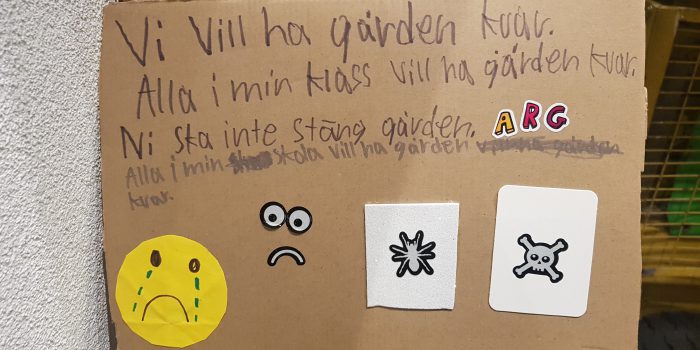 Vi vill ha gården kvar.
Alla i min klass vill ha gården kvar.
Ni ska inte stäng gården. ARG
Alla i min skola vill ha gården
kvar.